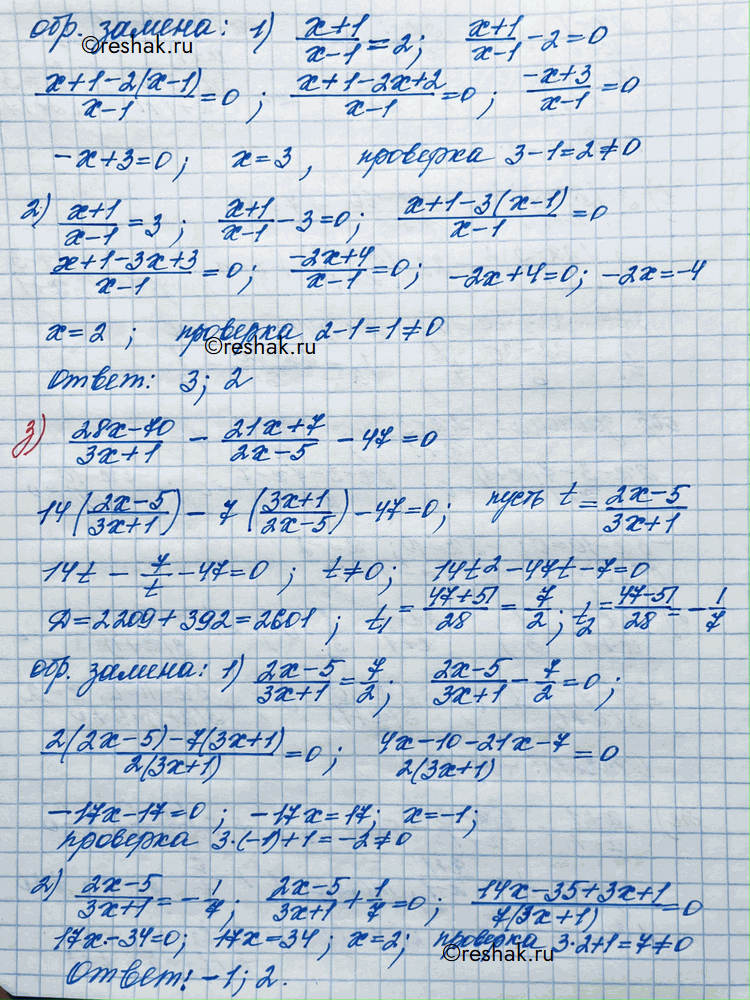 обр. замена: 1) (x+1)/(x-1) = 2; (x+1)/(x-1) - 2 = 0
©reshak.ru
(x+1-2(x-1))/(x-1) = 0; (x+1-2x+2)/(x-1) = 0; (-x+3)/(x-1) = 0
-x+3=0; x=3, проверка 3-1=2≠0
2) (x+1)/(x-1) = 3; (x+1)/(x-1) - 3 = 0; (x+1-3(x-1))/(x-1) = 0
(x+1-3x+3)/(x-1) = 0; (-2x+4)/(x-1) = 0; -2x+4=0; -2x=-4
x=2; проверка 2-1=1≠0
©reshak.ru
Ответ: 3; 2
3) (28x-70)/(3x+1) - (21x+7)/(2x-5) - 47 = 0
14((2x-5)/(3x+1)) - 7((3x+1)/(2x-5)) - 47 = 0; пусть t = (2x-5)/(3x+1)
14t - 7/t - 47 = 0; t≠0; 14t² - 47t - 7 = 0
Д=2209+392=2601; t₁ = (47+51)/28 = 7/2; t₂ = (47-51)/28 = -1/7
обр. замена: 1) (2x-5)/(3x+1) = 7/2; (2x-5)/(3x+1) - 7/2 = 0;
(2(2x-5)-7(3x+1))/(2(3x+1)) = 0; (4x-10-21x-7)/(2(3x+1)) = 0
-17x-17=0; -17x=17; x=-1;
проверка 3·(-1)+1=-2≠0
©reshak.ru
2) (2x-5)/(3x+1) = -1/7; (2x-5)/(3x+1) + 1/7 = 0; (14x-35+3x+1)/(7(3x+1)) = 0
17x-34=0; 17x=34; x=2; проверка 3·2+1=7≠0
©reshak.ru
Ответ: -1; 2.